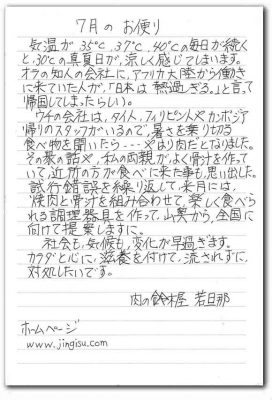 7月の お便り
気温が 35℃、37℃、40℃の毎日が続く
と、30℃の真夏日が、涼しく感じてしまいます。
オラの知人の会社に、アフリカ大陸から働き
に来ていた人が、「日本は 熱過ぎる。」と言って
帰国してしまったらしい。
ウチの会社は、タイ、フィリピンや カンボジア
帰りのスタッフがいるので、暑さを乗り切る
食べ物を聞いたら・・・やはり肉だとなりました。
その家の話や、私の両親がよく骨汁を作って
いて、近所の方が食べに来た事も思い出した。
試行錯誤を繰り返して、来月には、
焼肉と骨汁を組み合わせて、楽しく食べ
られる調理器具を作って、山笑から、全国に
向けて提案しますに。
社会も、気候も、変化が早過ぎます。
カラダと心に、滋養を付けて、流されずに、
対処したいです。
肉の鈴木屋 若旦那
ホームページ
www.jingisu.com